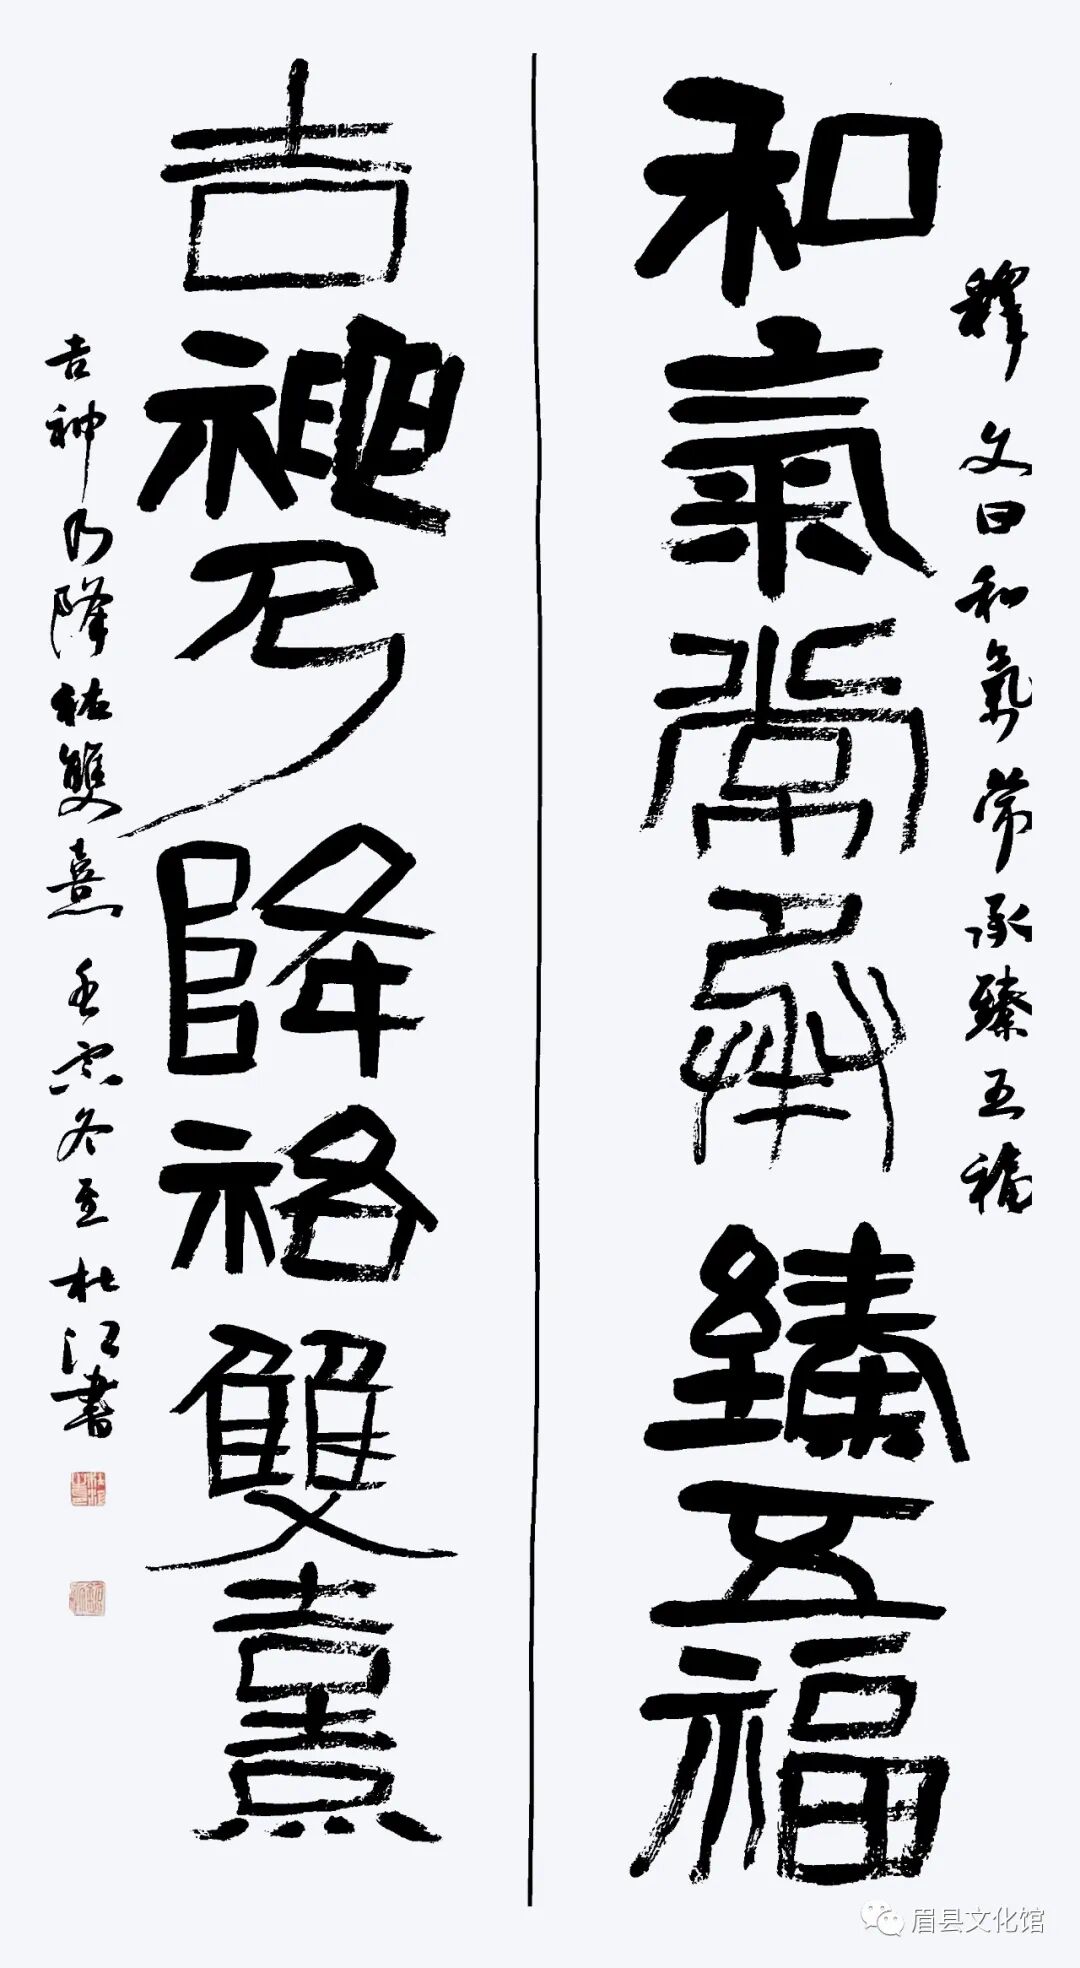 釋文曰和氣常承臻五福
和氣常承臻五福
吉神乃降祐雙熹
吉神乃降祐雙熹 壬寅冬至杜江書
眉县文化馆